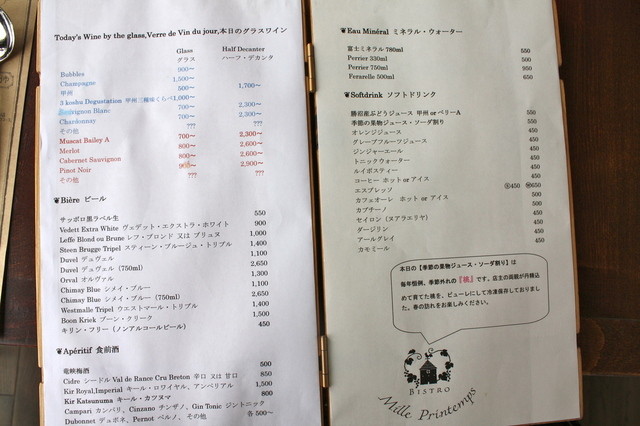 Today's Wine by the glass,Verre de Vin du jour,本日のグラスワイン
Glass Half Decanter
グラス ハーフ・デカンタ
Bubbles 900〜
Champagne 1,500〜
甲州 500〜 1,700〜
3 koshu Degustation 甲州三種味くらべ1,000〜
Sauvignon Blanc 700〜 2,300〜
Chardonnay 700〜 2,300〜
その他 ??? ???
Muscat Bailey A 700〜 2,300〜
Merlot 800〜 2,600〜
Cabernet Sauvignon 800〜 2,600〜
Pinot Noir 900〜 2,900〜
その他 ??? ???
❦Bière ビール
サッポロ黒ラベル生 550
Vedett Extra White ヴェデット・エクストラ・ホワイト 900
Leffe Blond ou Brune レフ・ブロンド 又は ブリュヌ 1,000
Steen Brugge Tripel スティーン・ブルージュ・トリプル 1,400
Duvel デュヴェル 1,100
Duvel デュヴェル (750ml) 2,650
Orval オルヴァル 1,300
Chimay Blue シメイ・ブルー 1,100
Chimay Blue シメイ・ブルー (750ml) 2,650
Westmalle Tripel ウエストマール・トリプル 1,400
Boon Kriek ブーン・クリーク 1,500
キリン・フリー (ノンアルコールビール) 450
❦Apéritif 食前酒
竜峡梅酒 500
Cidre シードル Val de Rance Cru Breton 辛口 又は 甘口 850
Kir Royal,Imperial キール・ロワイヤル、アンペリアル 1,500
Kir Katsunuma キール・カツヌマ 800
Campari カンパリ、Cinzano チンザノ、Gin Tonic ジントニック
Dubonnet デュボネ、Pernot ペルノ、その他 各 500〜
❦Eau Minéral ミネラル・ウォーター
富士ミネラル 780ml 550
Perrier 330ml 500
Perrier 750ml 950
Ferarelle 500ml 650
❦Softdrink ソフトドリンク
勝沼産ぶどうジュース 甲州 or ベリーA 550
季節の果物ジュース・ソーダ割り 550
オレンジジュース 450
グレープフルーツジュース 450
ジンジャーエール 450
トニックウォーター 450
ルイボスティー 450
コーヒー ホット or アイス 450
エスプレッソ Ⓢ450 Ⓦ650
カフェオーレ ホット or アイス 500
カプチーノ 500
セイロン (ヌアラエリヤ) 450
ダージリン 450
アールグレイ 450
カモミール 450
本日の【季節の果物ジュース・ソーダ割り】は
毎年恒例、季節外れの『桃』です。店主の両親が丹精込
めて育てた桃を、ピューレにして冷凍保存しておりまし
た。春の訪れをお楽しみください。
BISTRO
Mille Printemps